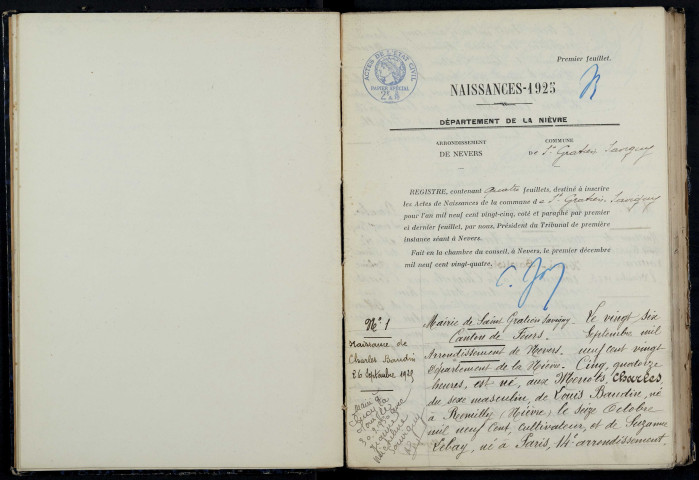 Premier feuillet.
ACTES DE L'ETAT CIVIL
PAPIER SPÉCIAL
NAISSANCES-1925
DÉPARTEMENT DE LA NIÈVRE
ARRONDISSEMENT
DE NEVERS
COMMUNE
De St Gratien Savigny
REGISTRE, contenant quatre feuillets, destiné à inscrire
les Actes de Naissances de la commune de St Gratien Savigny
pour l'an mil neuf cent vingt-cinq, coté et paraphé par premier
et dernier feuillet, par nous, Président du Tribunal de première
instance séant à Nevers.
Fait en la chambre du conseil, à Nevers, le premier décembre
mil neuf cent vingt-quatre,
N° 1
Naissance de
Charles Baudin
26 Septembre 1925
Marié à
Mairie de Saint Gratien Savigny
Canton de Fours
Arrondissement de Nevers
Département de la Nièvre.
Le vingt six
Septembre mil
neuf cent vingt
Cinq, quatorze
heures, est né, aux Meriots, Charles,
du sexe masculin, de Louis Baudin, né
à Remilly (Nièvre) le seize Octobre
mil neuf cent, cultivateur, et de Suzanne
Lebay, né à Paris, 14e arrondissement